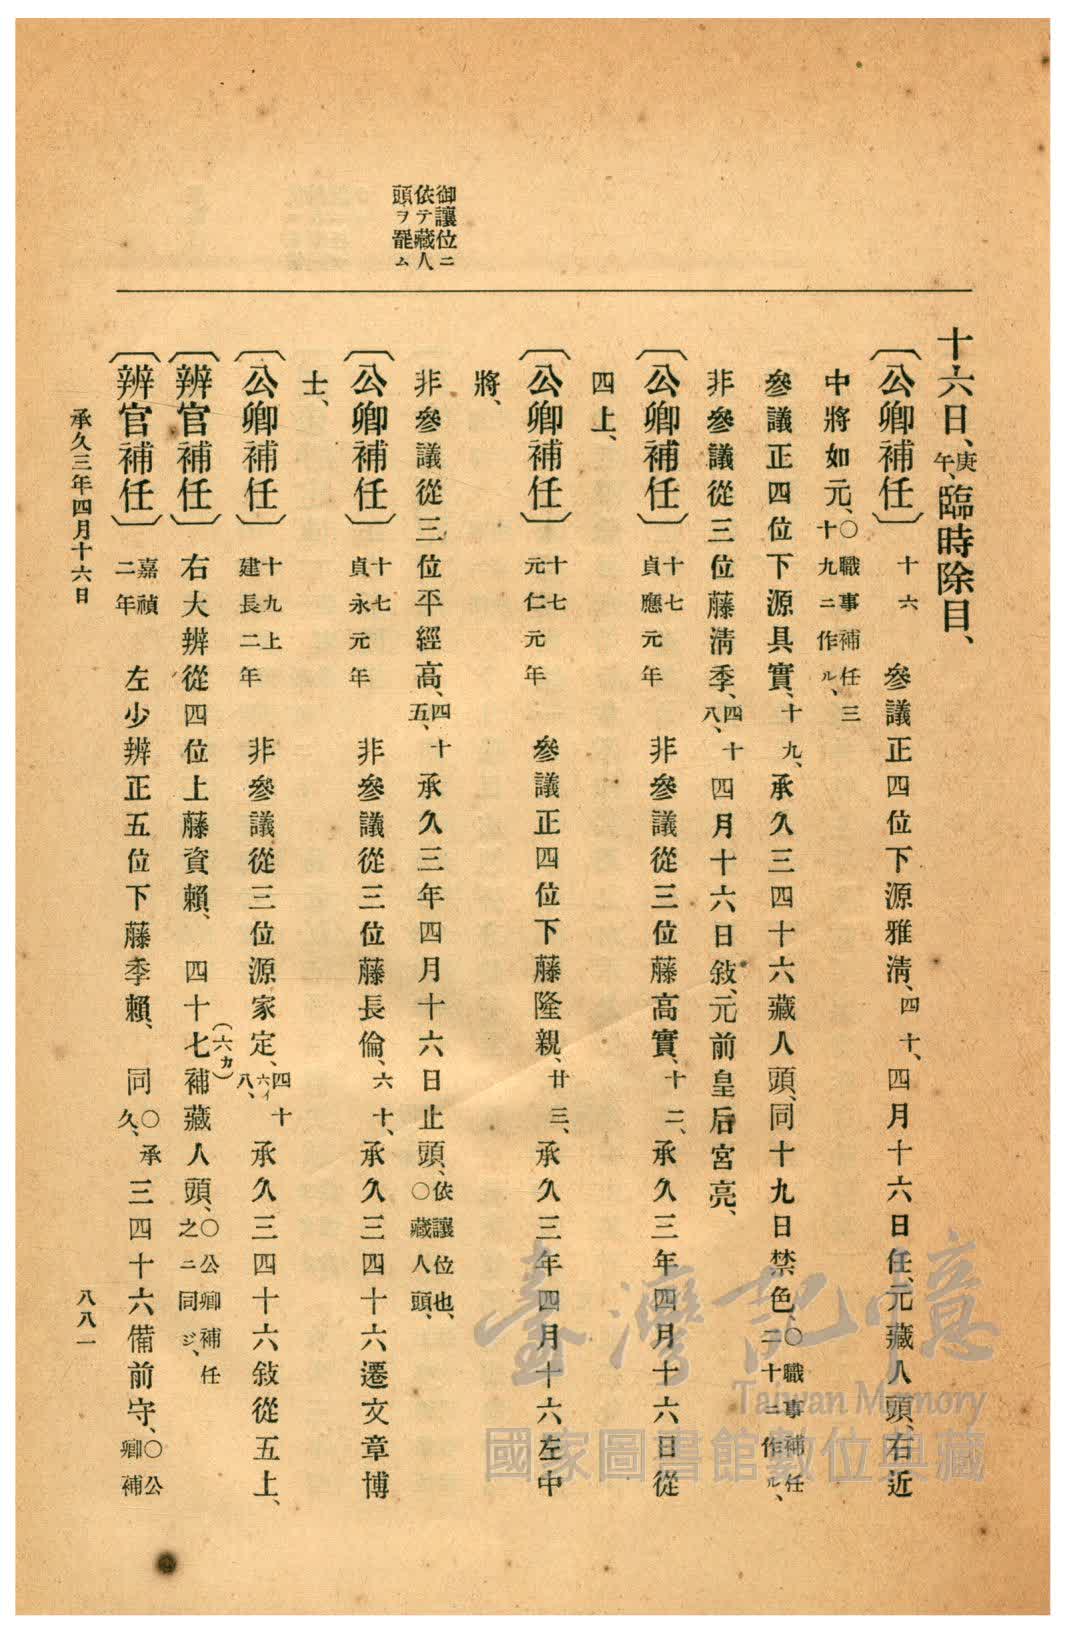 御讓位ニ
依テ藏人
頭ヲ罷ム
十六日、庚午、臨時除目、
〔公卿補任〕十六　參議正四位下源雅淸、四十、四月十六日任、元藏人頭、右近
中將如元、○職事補任三十九ニ作ル、
參議正四位下源具實、十九、承久三四十六藏人頭、同十九日禁色、○職事補任二十ニ作ル、
非參議從三位藤淸季、四十八、四月十六日敍、元前皇后宮亮、
〔公卿補任〕十七貞應元年　非參議從三位藤高實、十二、承久三年四月十六日從
四上、
〔公卿補任〕十七元仁元年　參議正四位下藤隆親、廿三、承久三年四月十六左中
將、
非參議從三位平經高、四十五、承久三年四月十六日止頭、依讓位也、○藏人頭、
〔公卿補任〕十七貞永元年　非參議從三位藤長倫、六十、承久三四十六遷文章博
士、
〔公卿補任〕十九上建長二年　非參議從三位源家定、四十八、六イ承久三四十六敍從五上、
〔辨官補任〕右大辨從四位上藤資賴、四十七(六カ)補藏人頭、○公卿補任之ニ同ジ、
〔辨官補任〕嘉禎二年　左少辨正五位下藤季賴、同○承久、三四十六備前守、○公卿補
承久三年四月十六日
八八一
臺灣記憶
Taiwan Memory
國家圖書館數位典藏